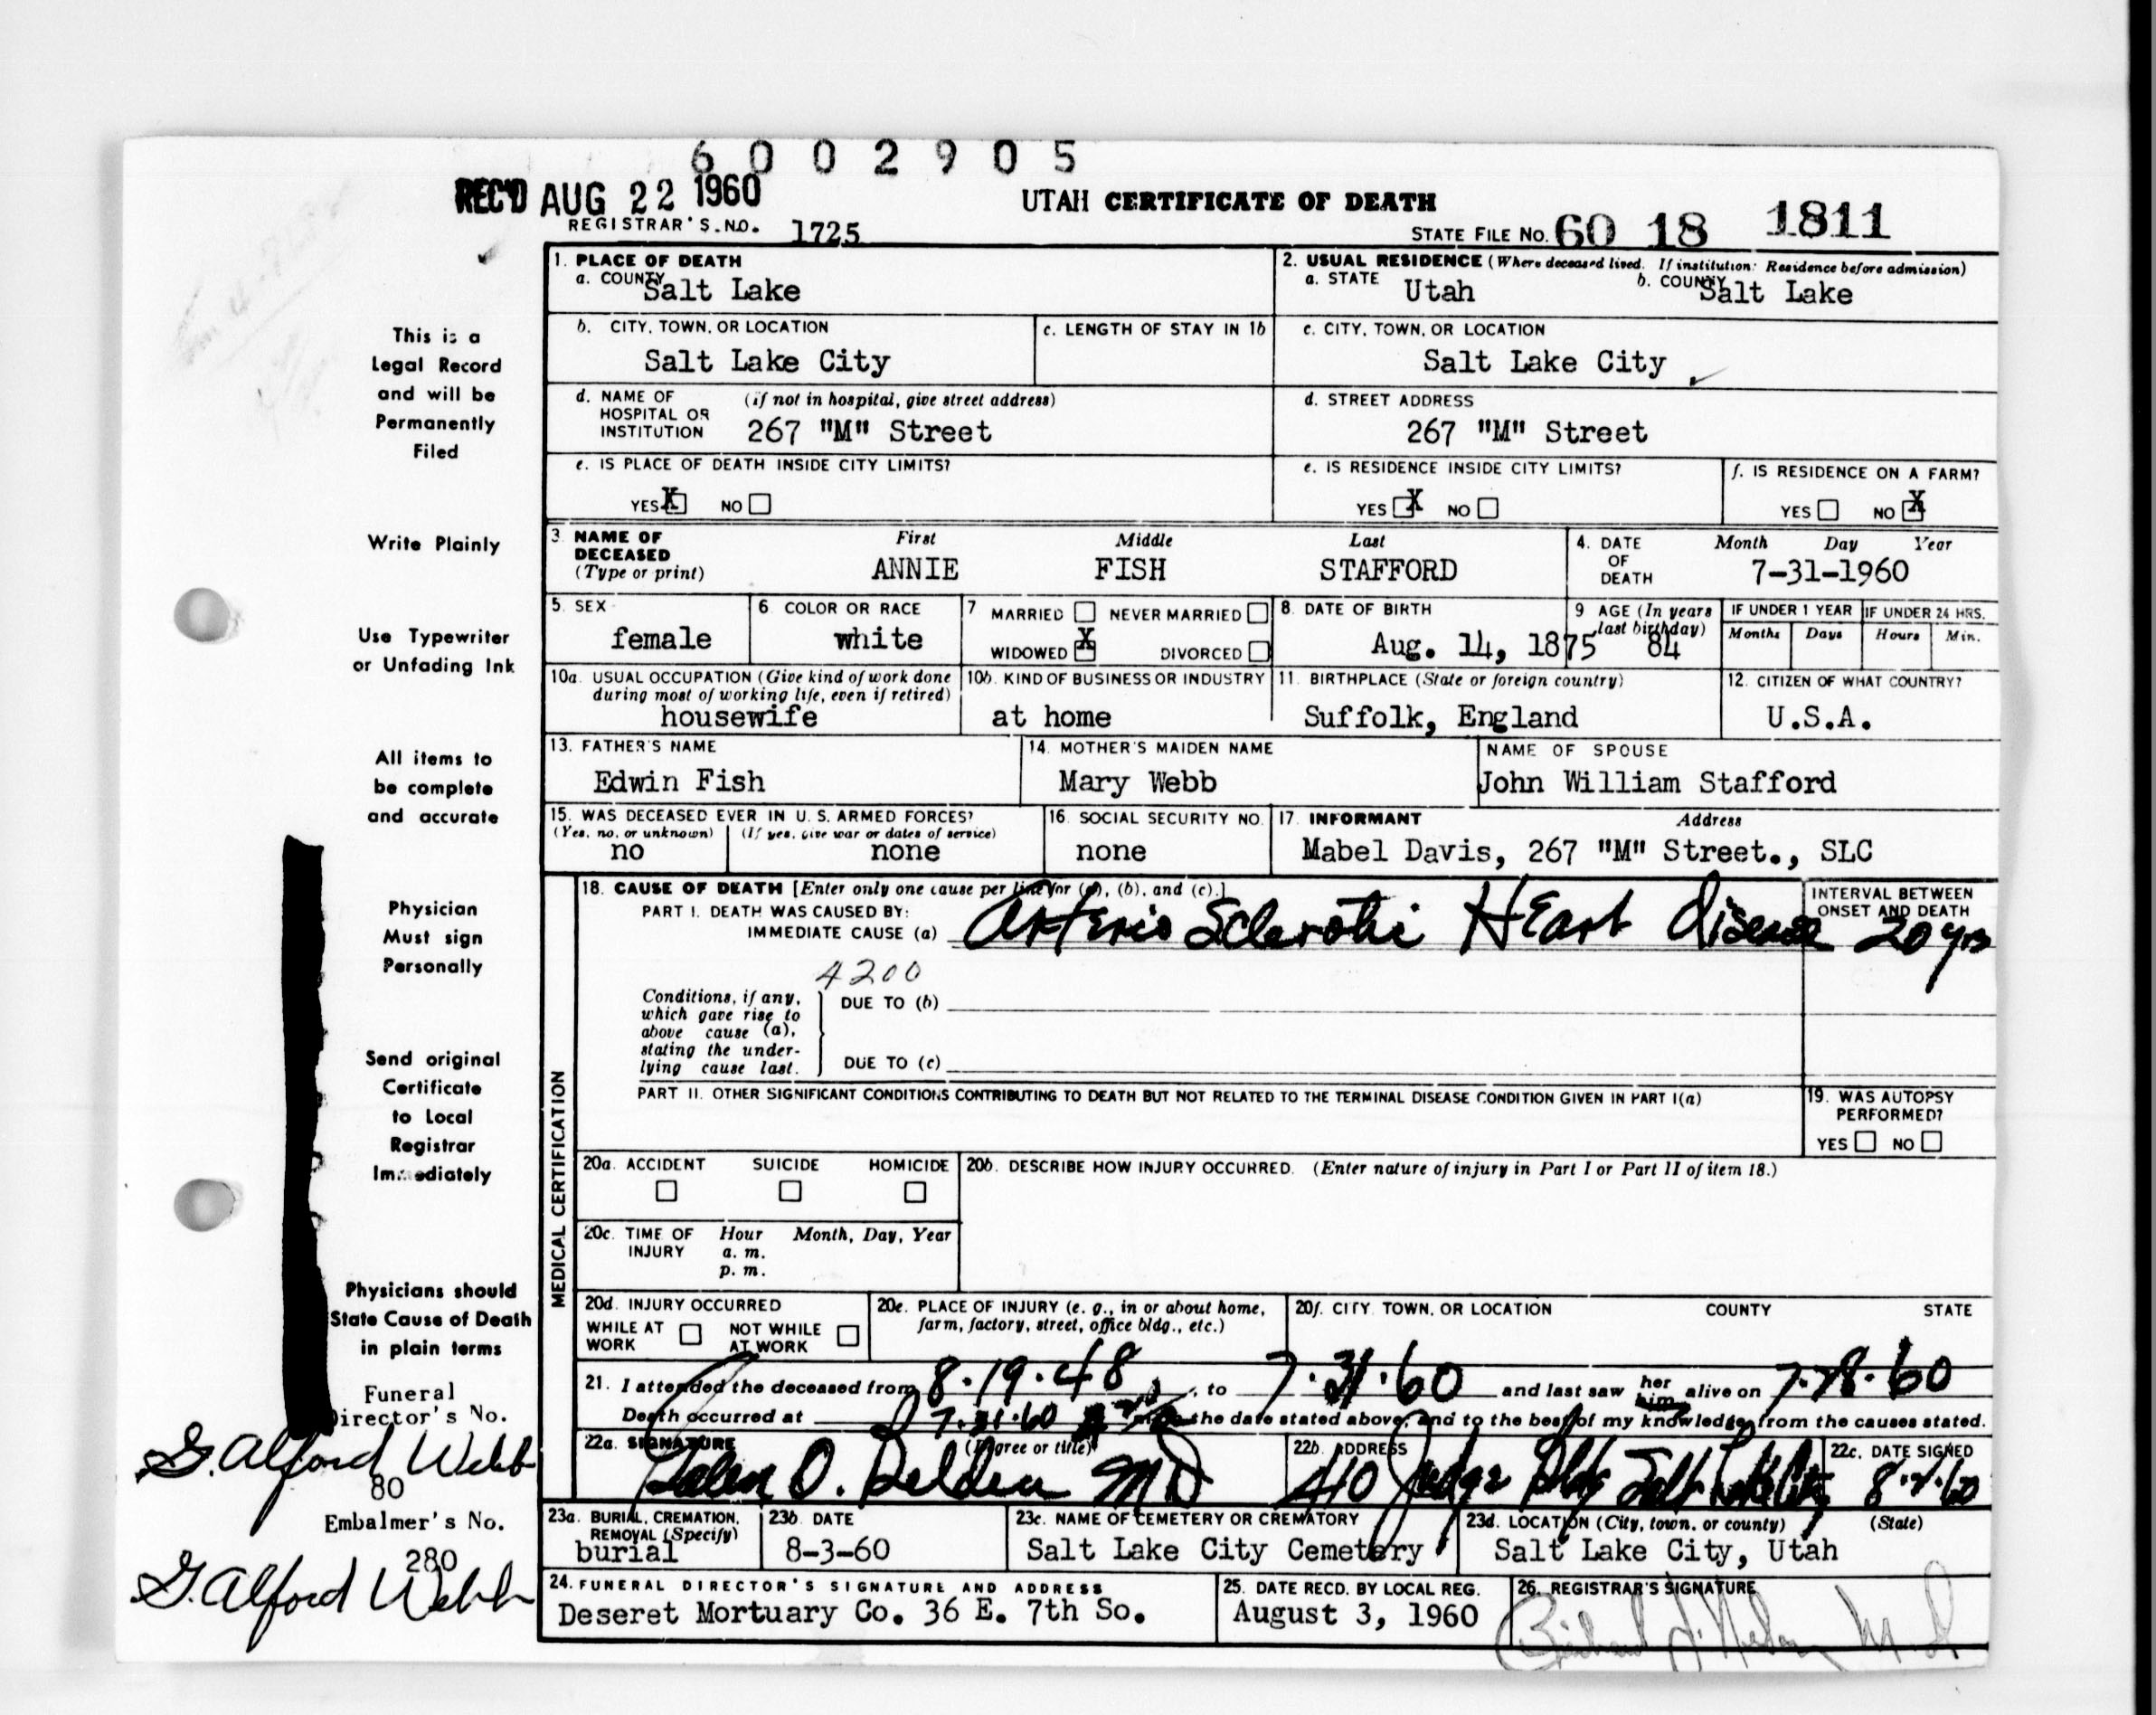 6002905
REC'D AUG 22 1960
UTAH CERTIFICATE OF DEATH
REGISTRAR'S NO. 1725
STATE FILE No. 60 18 1811
This is a
Legal Record
and will be
Permanently
Filed
Write Plainly
Use Typewriter
or Unfading Ink
All items to
be complete
and accurate
Physician
Must sign
Personally
Send original
Certificate
to Local
Registrar
Immediately
Physicians should
State Cause of Death
in plain terms
Funeral
Director's No.
G. Alford Webb
80
Embalmer's No.
280
G. Alford Webb
1. PLACE OF DEATH
a. COUNTY Salt Lake
2. USUAL RESIDENCE (Where deceased lived. If institution: Residence before admission)
a. STATE Utah b. COUNTY Salt Lake
b. CITY, TOWN, OR LOCATION
Salt Lake City
c. LENGTH OF STAY IN 1b
c. CITY, TOWN, OR LOCATION
Salt Lake City
d. NAME OF HOSPITAL OR INSTITUTION (if not in hospital, give street address)
267 "M" Street
d. STREET ADDRESS
267 "M" Street
e. IS PLACE OF DEATH INSIDE CITY LIMITS?
YES X NO
e. IS RESIDENCE INSIDE CITY LIMITS?
YES X NO
f. IS RESIDENCE ON A FARM?
YES NO X
3. NAME OF DECEASED (Type or print)
First Middle Last
ANNIE FISH STAFFORD
4. DATE OF DEATH
Month Day Year
7-31-1960
5. SEX
female
6. COLOR OR RACE
white
7 MARRIED NEVER MARRIED
WIDOWED X DIVORCED
8. DATE OF BIRTH
Aug. 14, 1875
9 AGE (In years last birthday)
84
IF UNDER 1 YEAR IF UNDER 24 HRS.
Months Days Hours Min.
10a. USUAL OCCUPATION (Give kind of work done
during most of working life, even if retired)
housewife
10b. KIND OF BUSINESS OR INDUSTRY
at home
11. BIRTHPLACE (State or foreign country)
Suffolk, England
12. CITIZEN OF WHAT COUNTRY?
U.S.A.
13. FATHER'S NAME
Edwin Fish
14. MOTHER'S MAIDEN NAME
Mary Webb
NAME OF SPOUSE
John William Stafford
15. WAS DECEASED EVER IN U. S. ARMED FORCES?
(Yes, no, or unknown) (If yes, give war or dates of service)
no none
16. SOCIAL SECURITY NO.
none
17. INFORMANT Address
Mabel Davis, 267 "M" Street., SLC
MEDICAL CERTIFICATION
18. CAUSE OF DEATH [Enter only one cause per line for (a), (b), and (c).]
PART I. DEATH WAS CAUSED BY:
IMMEDIATE CAUSE (a) Arterio Sclerotic Heart Disease
INTERVAL BETWEEN
ONSET AND DEATH
20 yrs
4200
Conditions, if any,
which gave rise to
above cause (a),
stating the under-
lying cause last.
DUE TO (b)
DUE TO (c)
PART II. OTHER SIGNIFICANT CONDITIONS CONTRIBUTING TO DEATH BUT NOT RELATED TO THE TERMINAL DISEASE CONDITION GIVEN IN PART I(a)
19. WAS AUTOPSY
PERFORMED?
YES NO
20a. ACCIDENT SUICIDE HOMICIDE
20b. DESCRIBE HOW INJURY OCCURRED. (Enter nature of injury in Part I or Part II of item 18.)
20c. TIME OF INJURY Hour Month, Day, Year
a. m.
p. m.
20d. INJURY OCCURRED
WHILE AT WORK NOT WHILE AT WORK
20e. PLACE OF INJURY (e. g., in or about home,
farm, factory, street, office bldg., etc.)
20f. CITY, TOWN, OR LOCATION COUNTY STATE
21. I attended the deceased from 8.19.48, to 7.31.60 and last saw her him alive on 7.28.60
Death occurred at 7.31.60 the date stated above, and to the best of my knowledge, from the causes stated.
22a. SIGNATURE (Degree or title)
Galen O. Belden MD
22b. ADDRESS
410 Judge Bldg Salt Lake City
22c. DATE SIGNED
23a. BURIAL, CREMATION,
REMOVAL (Specify)
burial
23b. DATE
8-3-60
23c. NAME OF CEMETERY OR CREMATORY
Salt Lake City Cemetery
23d. LOCATION (City, town, or county) (State)
Salt Lake City, Utah
24. FUNERAL DIRECTOR'S SIGNATURE AND ADDRESS
Deseret Mortuary Co. 36 E. 7th So.
25. DATE RECD. BY LOCAL REG.
August 3, 1960
26. REGISTRAR'S SIGNATURE